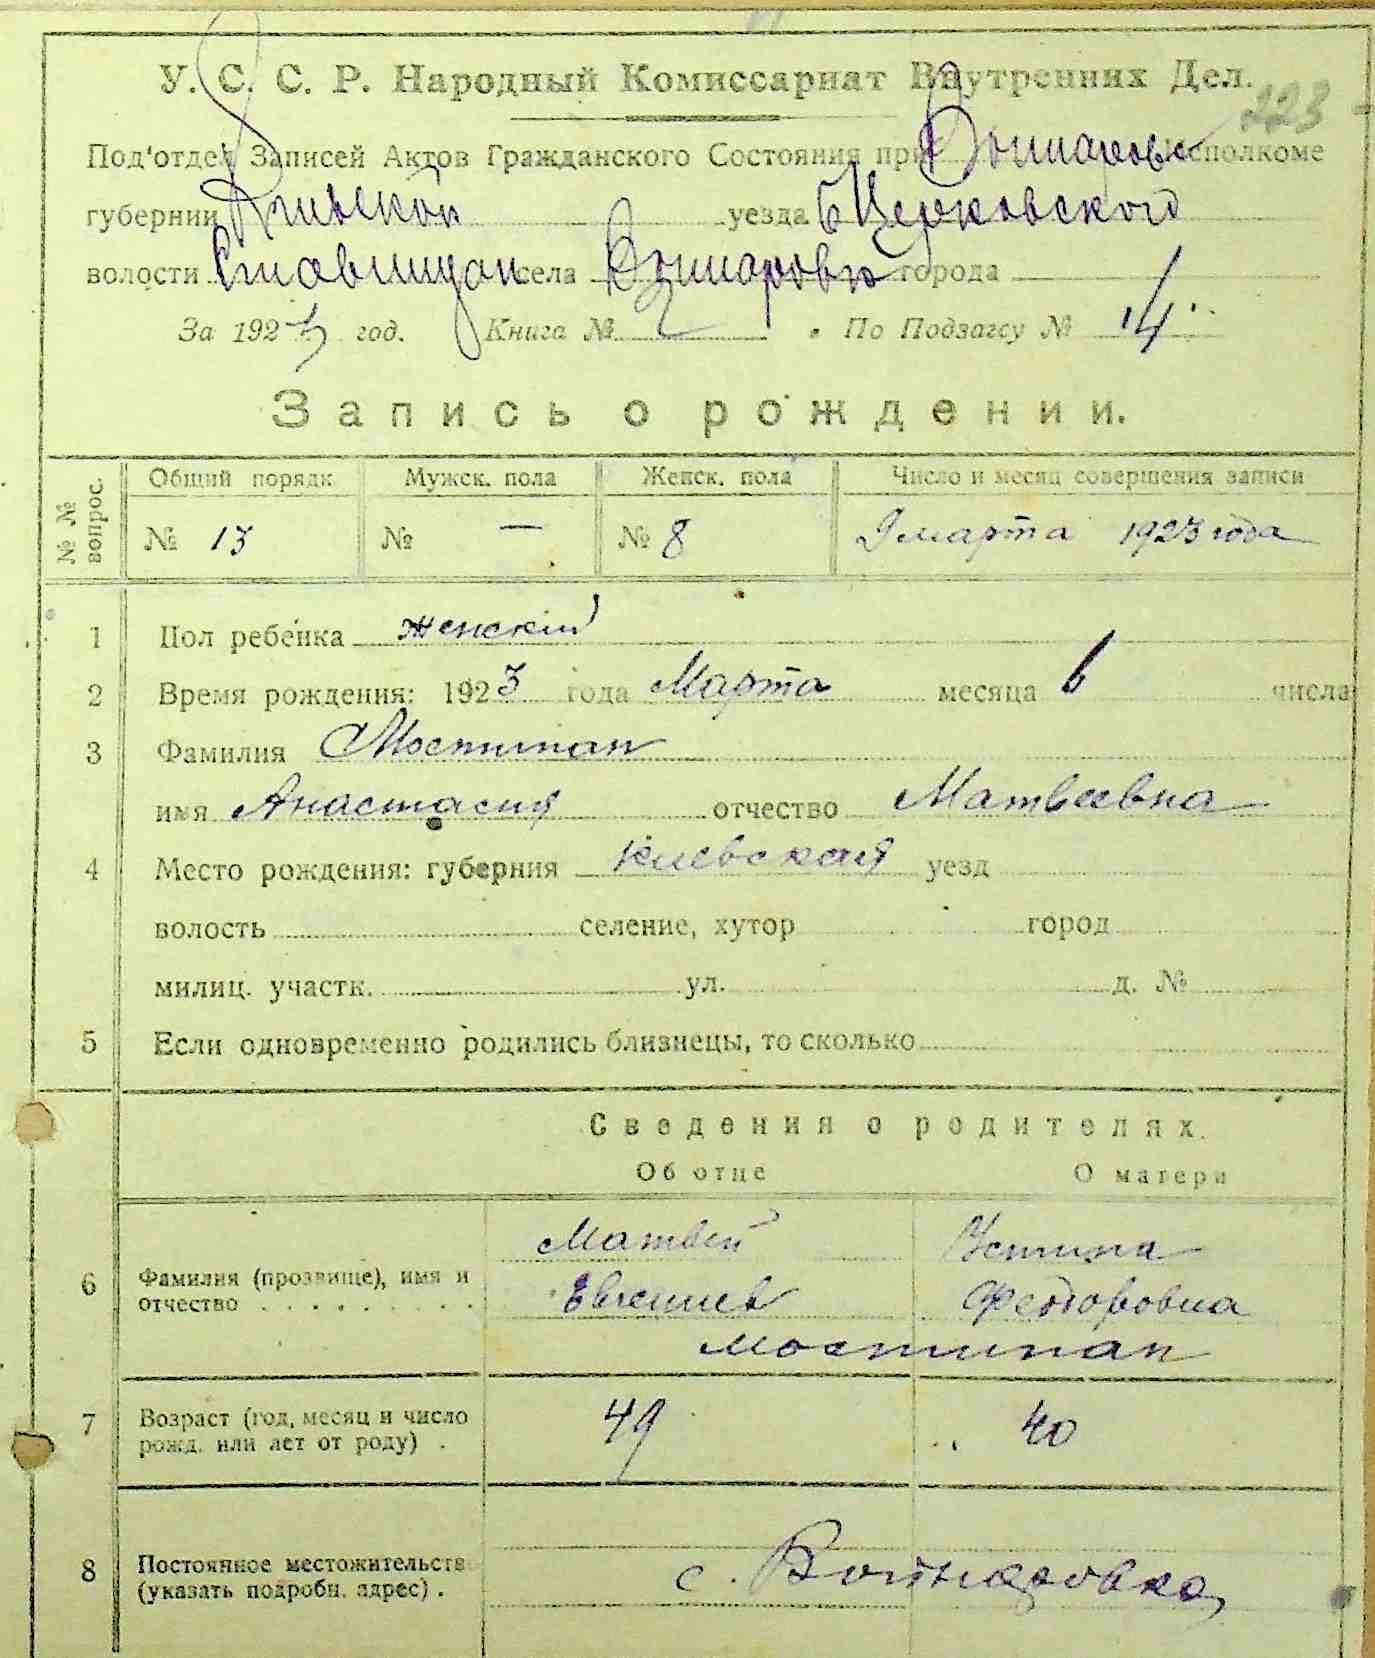 У. С. С. Р. Народный Комиссариат Внутренних Дел.
223
Под'отдел Записей Актов Гражданского Состояния при Исполкоме
губернии Киевской уезда БЦерковского
волости села города
За 1923 год. Книга № 2 По Подзагсу № 14
Запись о рождении.
№ № вопрос. Общий порядк Мужск. пола Женск. пола Число и месяц совершения записи
№ 13 № — № 8 9 марта 1923 года
1 Пол ребенка женский
2 Время рождения: 1923 года Марта месяца 6 числа
3 Фамилия Мостипан
имя Анастасия отчество Матвеевна
4 Место рождения: губерния Киевская уезд
волость селение, хутор город
милиц. участк. ул. д. №
5 Если одновременно родились близнецы, то сколько
Сведения о родителях.
Об отце О матери
6 Фамилия (прозвище), имя и отчество Матвей Евгениев Устина Федоровна
Мостипан
7 Возраст (год, месяц и число рожд. или лет от роду) 49 40
8 Постоянное местожительств (указать подробн. адрес) с. Войнаровка